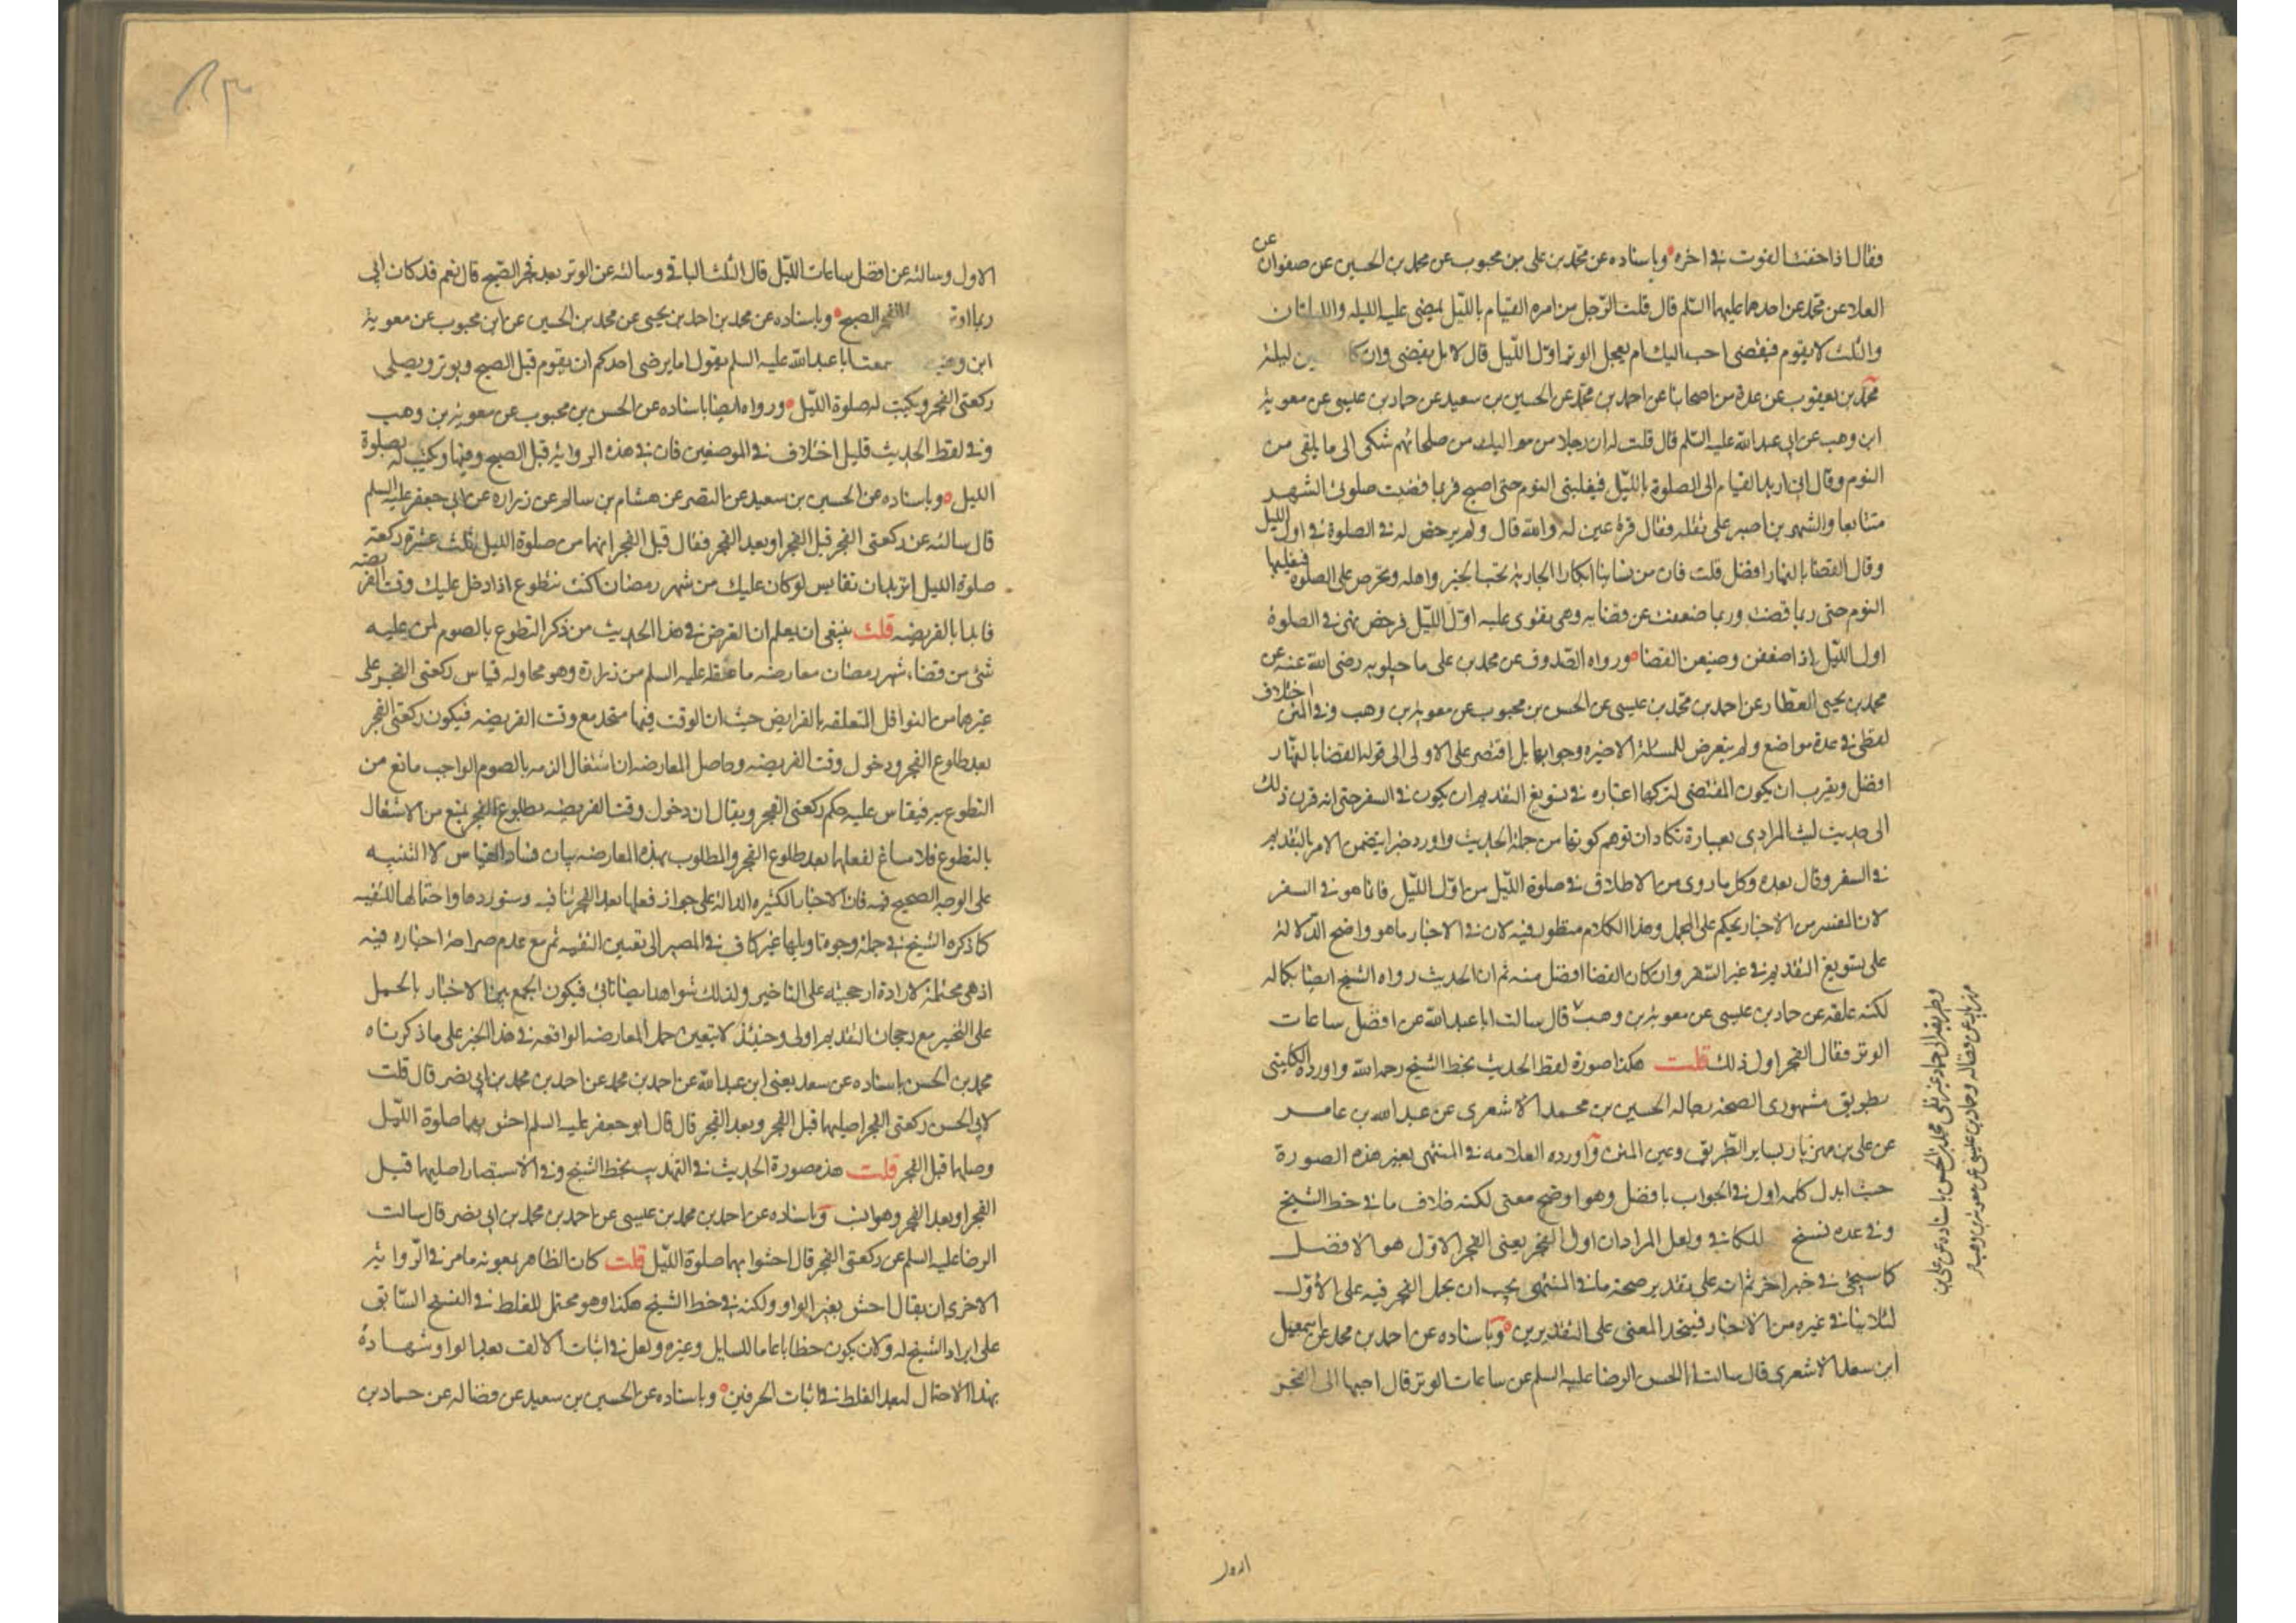 فقال اذا خفت الفوت في اخره وباسناده عن محمد بن علي بن محبوب عن محمد بن الحسين عن صفوان عن
العلا عن محمد عن احدهما عليهما السلم قال قلت الرجل من امره القيام بالليل يمضي عليه الليله والليلتان
والثلث لا يقوم فيقضي احب اليك ام يعجل الوتر اول الليل قال لا بل يقضي وان كا ين ليلة
محمد بن يعقوب عن عدة من اصحابنا عن احمد بن محمد عن الحسين بن سعيد عن حماد بن عيسى عن معوية
ابن وهب عن ابي عبد الله عليه السلم قال قلت له ان رجلا من مواليك من صلحائهم شكى الى ما يلقى من
النوم وقال اني اريد القيام الى الصلوة بالليل فيغلبني النوم حتى اصبح فربما قضيت صلوتي الشهر
متتابعا والشهرين اصبر على ثقله فقال قرة عين له والله قال ولم يرخص له في الصلوة في اول الليل
وقال القضا بالنهار افضل قلت فان من نسائنا ابكارا الجارية تحب الخير واهله وتحرص على الصلوة فيغلبها
النوم حتى ربما قضت وربما ضعفت عن قضائه وهي تقوى عليه اول الليل فرخص لهن في الصلوة
اول الليل اذا ضعفن وضيعن القضا ورواه الصدوق عن محمد بن علي ماجيلويه رضي الله عنه عن
محمد بن يحيى العطار عن احمد بن محمد بن عيسى عن الحسن بن محبوب عن معوية بن وهب وفي المتن اختلاف
لفظي في عدة مواضع ولم يتعرض للمسئلة الاخيره وجوابها بل اقتصر على الاولى الى قوله القضا بالنهار
افضل ويقرب ان يكون المقتضي لتركها اعتباره في تسويغ التقديم ان يكون في السفر حتى انه قرن ذلك
الى حديث ليث المرادي بعبارة تكاد ان توهم كونها من جملة الحديث واورد خبرا يتضمن الامر بالتقديم
في السفر وقال بعده وكل ما روى من الاطلاق في صلوة الليل من اول الليل فانما هو في السفر
لان المفسر من الاخبار يحكم على المجمل وهذا الكلام منظور فيه لان في الاخبار ما هو واضح الدلالة
على تسويغ التقديم في غير السفر وان كان القضا افضل منه ثم ان الحديث رواه الشيخ ايضا بكماله
لكنه علقه عن حماد بن عيسى عن معوية بن وهب قال سالت ابا عبد الله عن افضل ساعات
الوتر فقال الفجر اول ذلك قلت هكذا صورة لفظ الحديث بخط الشيخ رحمه الله واورده الكليني
بطريق مشهوري الصحة رجاله الحسين بن محمد الاشعري عن عبد الله بن عامر
عن علي بن مهزيار بساير الطريق وعين المتن واورده العلامه في المنتهى بغير هذه الصورة
حيث ابدل كلمه اول في الجواب بافضل وهو اوضح معنى لكنه خلاف ما في خط الشيخ
وفي عده نسخ للكافي ولعل المراد ان اول الفجر يعني الفجر الاول هو الافضل
كما سيجئ في خبر اخر ثم انه على تقدير صحة ما في المنتهى يجب ان يحمل الفجر فيه على الاول
لئلا ينافي غيره من الاخبار فيتحد المعنى على التقديرين وباسناده عن احمد بن محمد عن اسمعيل
ابن سعد الاشعري قال سالت ابا الحسن الرضا عليه السلم عن ساعات الوتر قال احبها الى الفجر
وطريقه الى حماد عن محمد بن الحسن باسناده عن علي بن
مهزيار عن فضاله وحماد بن عيسى عن معوية بن وهب
الاول
الاول وسالته عن افضل ساعات الليل قال الثلث الباقي وسالته عن الوتر بعد فجر الصبح قال نعم قد كان ابي
ربما اوتر الفجر الصبح وباسناده عن محمد بن احمد بن يحيى عن محمد بن الحسين عن ابن محبوب عن معوية
ابن وهب سمعت ابا عبد الله عليه السلم يقول اما يرضى احدكم ان يقوم قبل الصبح ويوتر ويصلي
ركعتي الفجر ويكتب له صلوة الليل ورواه ايضا باسناده عن الحسن بن محبوب عن معوية بن وهب
وفي لفظ الحديث قليل اختلاف في الموضعين فان في هذه الرواية قبل الصبح وفيها ويكتب له بصلوة
الليل وباسناده عن الحسين بن سعيد عن النضر عن هشام بن سالم عن زراره عن ابي جعفر عليه السلم
قال سالته عن ركعتي الفجر قبل الفجر او بعد الفجر فقال قبل الفجر انهما من صلوة الليل ثلث عشرة ركعة
صلوة الليل اتريد ان تقايس لو كان عليك من شهر رمضان اكنت تتطوع اذا دخل عليك وقت الفريضه
فابدا بالفريضه قلت ينبغي ان يعلم ان الغرض في هذا الحديث من ذكر التطوع بالصوم لمن عليه
شئ من قضاء شهر رمضان معارضه ما عقله عليه السلم من زرارة وهو محاوله قياس ركعتي الفجر على
غيرهما من النوافل المتعلقه بالفرايض حيث ان الوقت فيها متحد مع وقت الفريضه فيكون ركعتي الفجر
بعد طلوع الفجر ودخول وقت الفريضه وحاصل المعارضه ان اشتغال الذمه بالصوم الواجب مانع من
التطوع به فيقاس عليه حكم ركعتي الفجر ويقال ان دخول وقت الفريضه بطلوع الفجر يمنع من الاشتغال
بالتطوع فلا مساغ لفعلهما بعد طلوع الفجر والمطلوب بهذه المعارضه بيان فساد القياس لا التنبيه
على الوجه الصحيح فيه فان الاخبار الكثيره الدالة على جواز فعلها بعد الفجر تنافيه وسنوردها واحتمالها للتقيه
كما ذكره الشيخ في جملة وجوه تاويلها غير كاف في المصير الى تعين التقيه ثم مع عدم صراحة اخباره فيه
اذ هي محتملة لارادة ارجحيته على التاخير ولذلك شواهد ايضا تاتي فيكون الجمع بين الاخبار بالحمل
على التخير مع رجحان التقديم اولى وحينئذ لا يتعين حمل المعارضه الواقعه في هذا الخبر على ما ذكرناه
محمد بن الحسن باسناده عن سعد يعني ابن عبد الله عن احمد بن محمد عن احمد بن محمد بن ابي نصر قال قلت
لابي الحسن ركعتي الفجر اصليهما قبل الفجر وبعد الفجر قال قال ابو جعفر عليه السلم احش بهما صلوة الليل
وصلها قبل الفجر قلت هذه صورة الحديث في التهذيب بخط الشيخ وفي الاستبصار اصليهما قبل
الفجر او بعد الفجر وهو انسب وباسناده عن احمد بن محمد بن عيسى عن احمد بن محمد بن ابي نصر قال سالت
الرضا عليه السلم عن ركعتي الفجر قال احشوا بهما صلوة الليل قلت كان الظاهر بمعونه ما مر في الرواية
الاخرى ان يقال احش بغير الواو ولكنه في خط الشيخ هكذا وهو محتمل للغلط في النسخ السابق
على ايراد الشيخ له ولان يكون خطابا عاما للسايل وغيره ولعل في اثبات الالف بعد الواو شهادة
بهذا الاحتمال لبعد الغلط في اثبات الحرفين وباسناده عن الحسين بن سعيد عن فضاله عن حماد بن